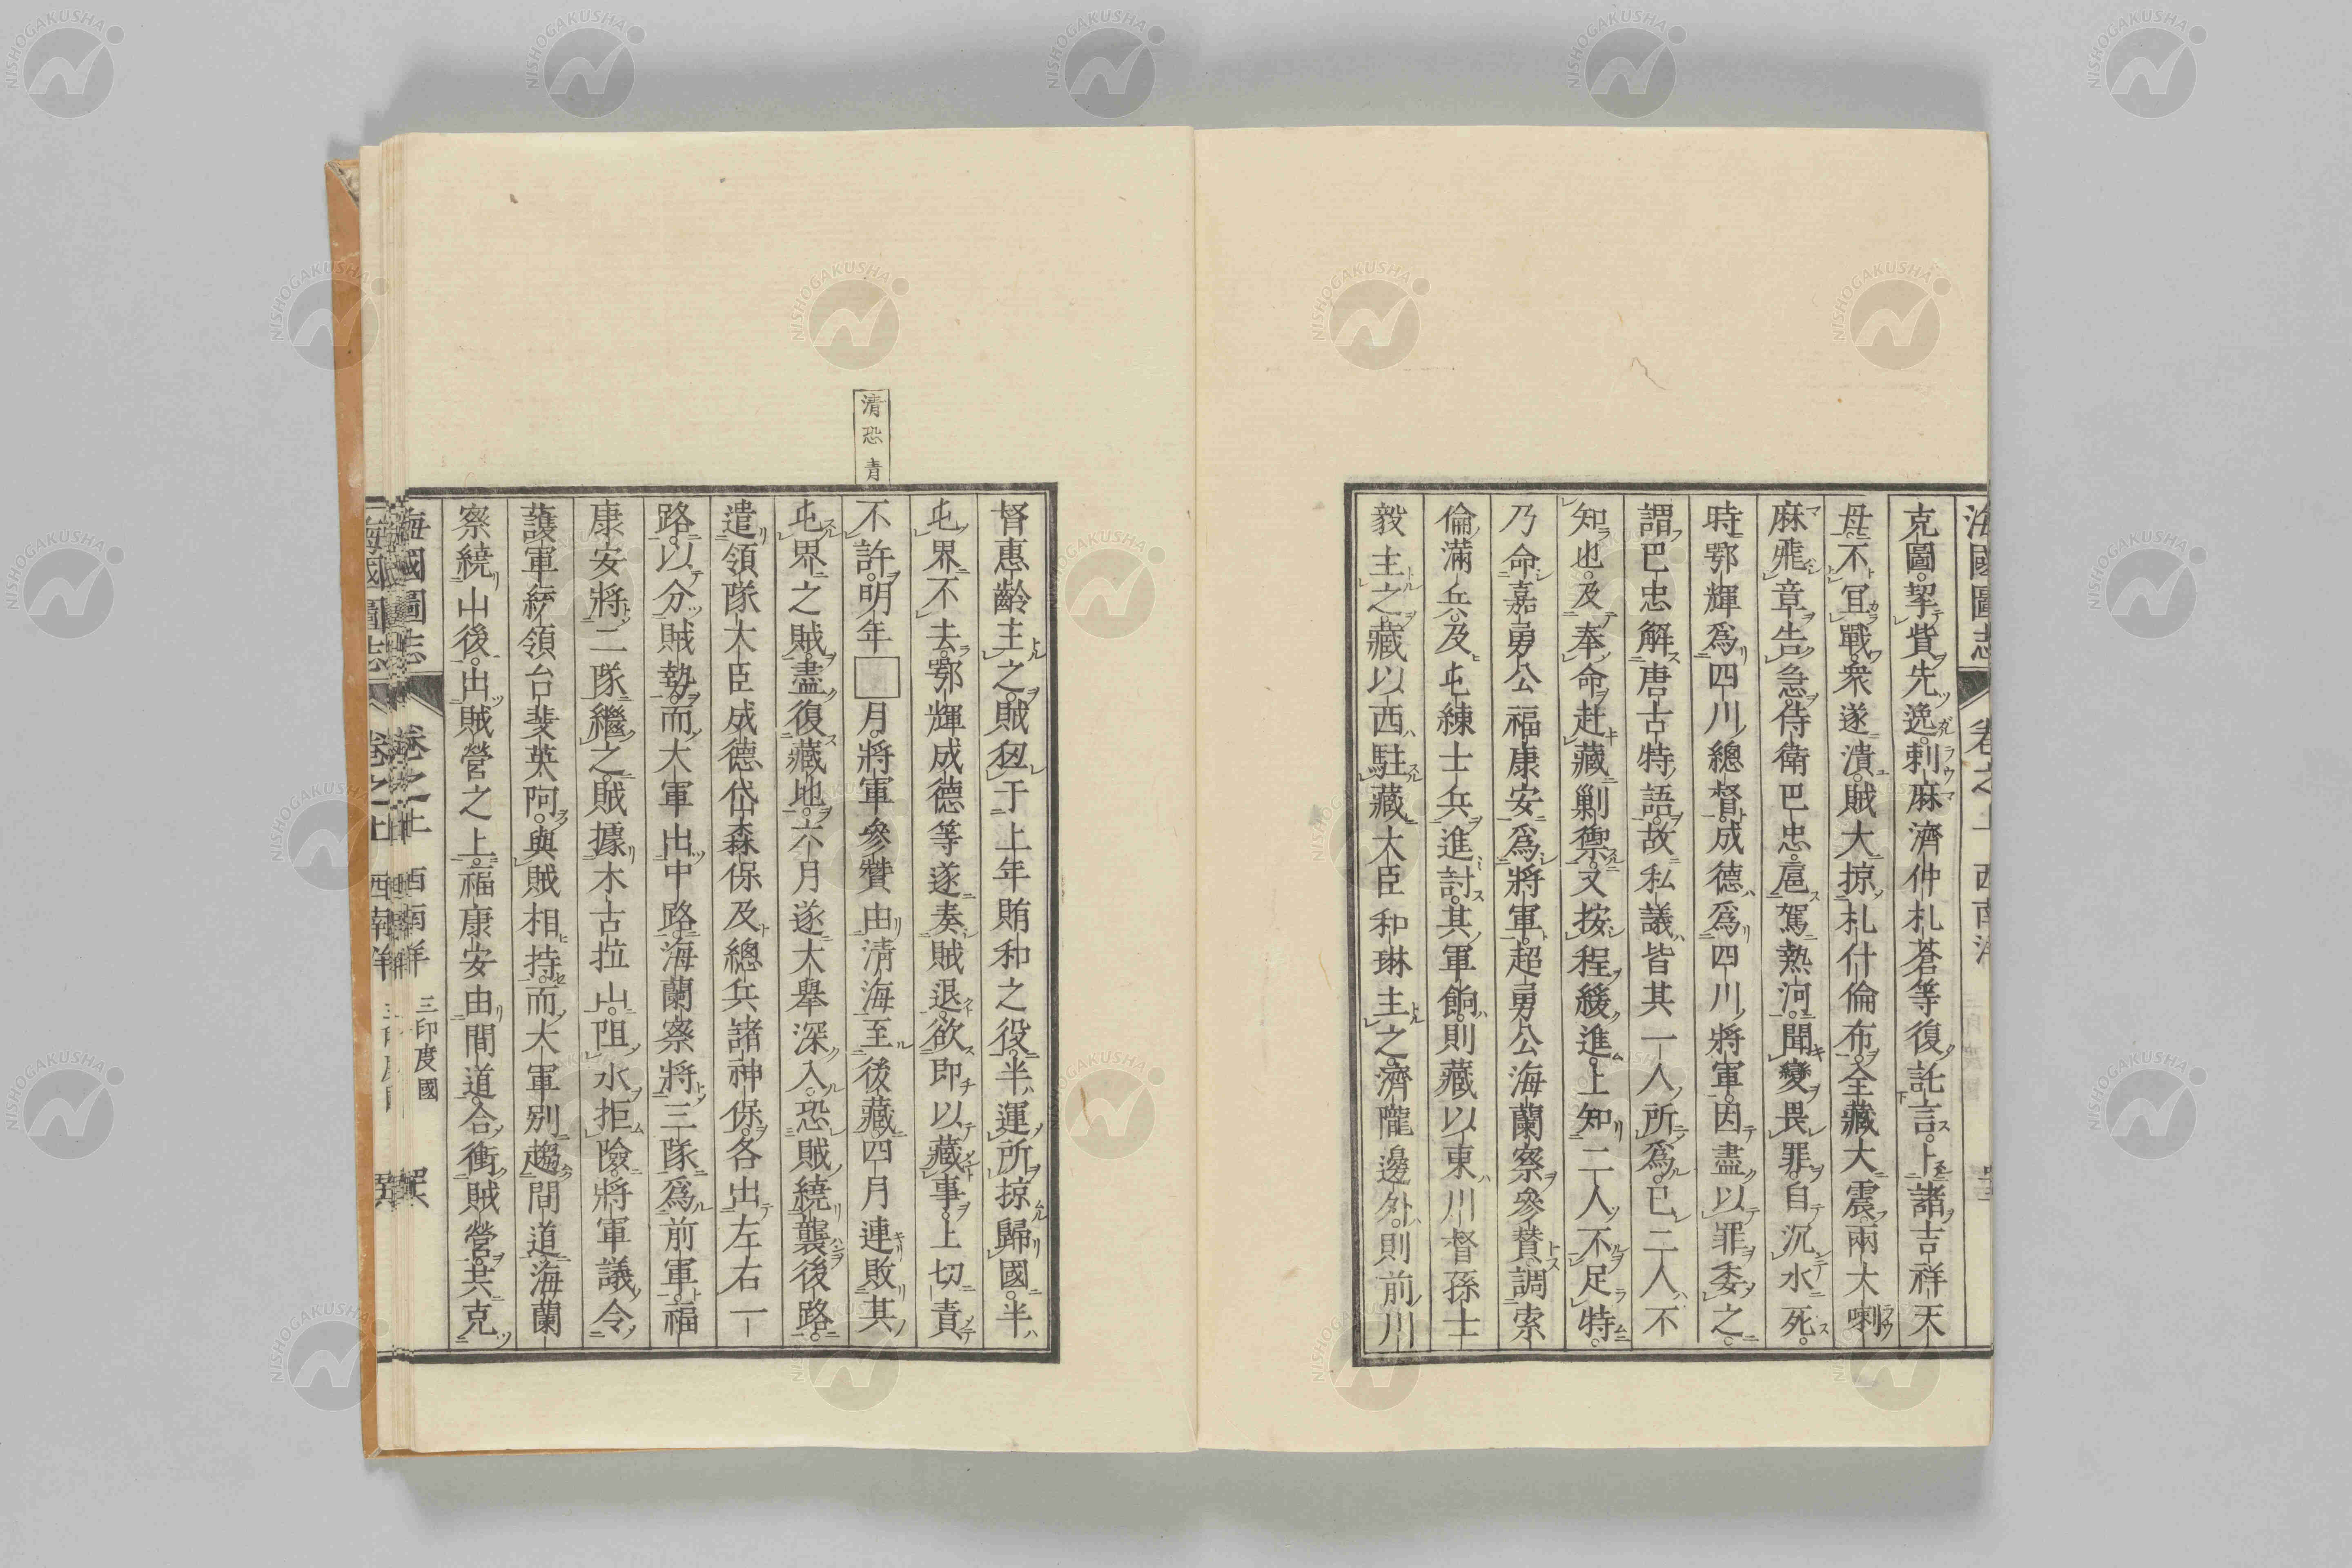 海國圖志 卷之上 西南洋
克圖。挈貲先逸。剌麻濟仲札蒼等復託言。卜諸吉祥天
母。不宜戰。衆遂潰。賊大掠札什倫布。全藏大震。兩大喇
麻飛章告急。侍衛巴忠。扈駕熱河。聞變畏罪。自沉水死。
時鄂輝爲四川總督。成德爲四川將軍。因盡以罪委之。
謂巴忠解唐古特語。故私議皆其一人所爲。已二人不
知也。及奉命赴藏剿禦。又按程緩進。上知二人不足恃。
乃命嘉勇公福康安爲將軍。超勇公海蘭察參贊。調索
倫滿兵。及屯練士兵進討。其軍餉。則藏以東川督孫士
毅主之。藏以西駐藏大臣和琳主之。濟隴邊外。則前川
督惠齡主之。賊忸于上年賄和之役。半運所掠歸國。半
屯界不去。鄂輝成德等遂奏賊退。欲即以藏事。上切責
不許。明年□月。將軍參贊由清海至後藏。四月連敗其
屯界之賊。盡復藏地。六月遂大舉深入。恐賊繞襲後路。
遣領隊大臣成德岱森保及總兵諸神保。各出左右一
路。以分賊勢。而大軍出中路。海蘭察將三隊爲前軍。福
康安將二隊繼之。賊據木古拉山。阻水拒險。將軍議令
護軍統領台斐英阿。與賊相持。而大軍別趨間道。海蘭
察繞山後。出賊營之上。福康安由間道。合衝賊營。共克
清恐青
海國圖志 卷之上 西南洋 三印度國